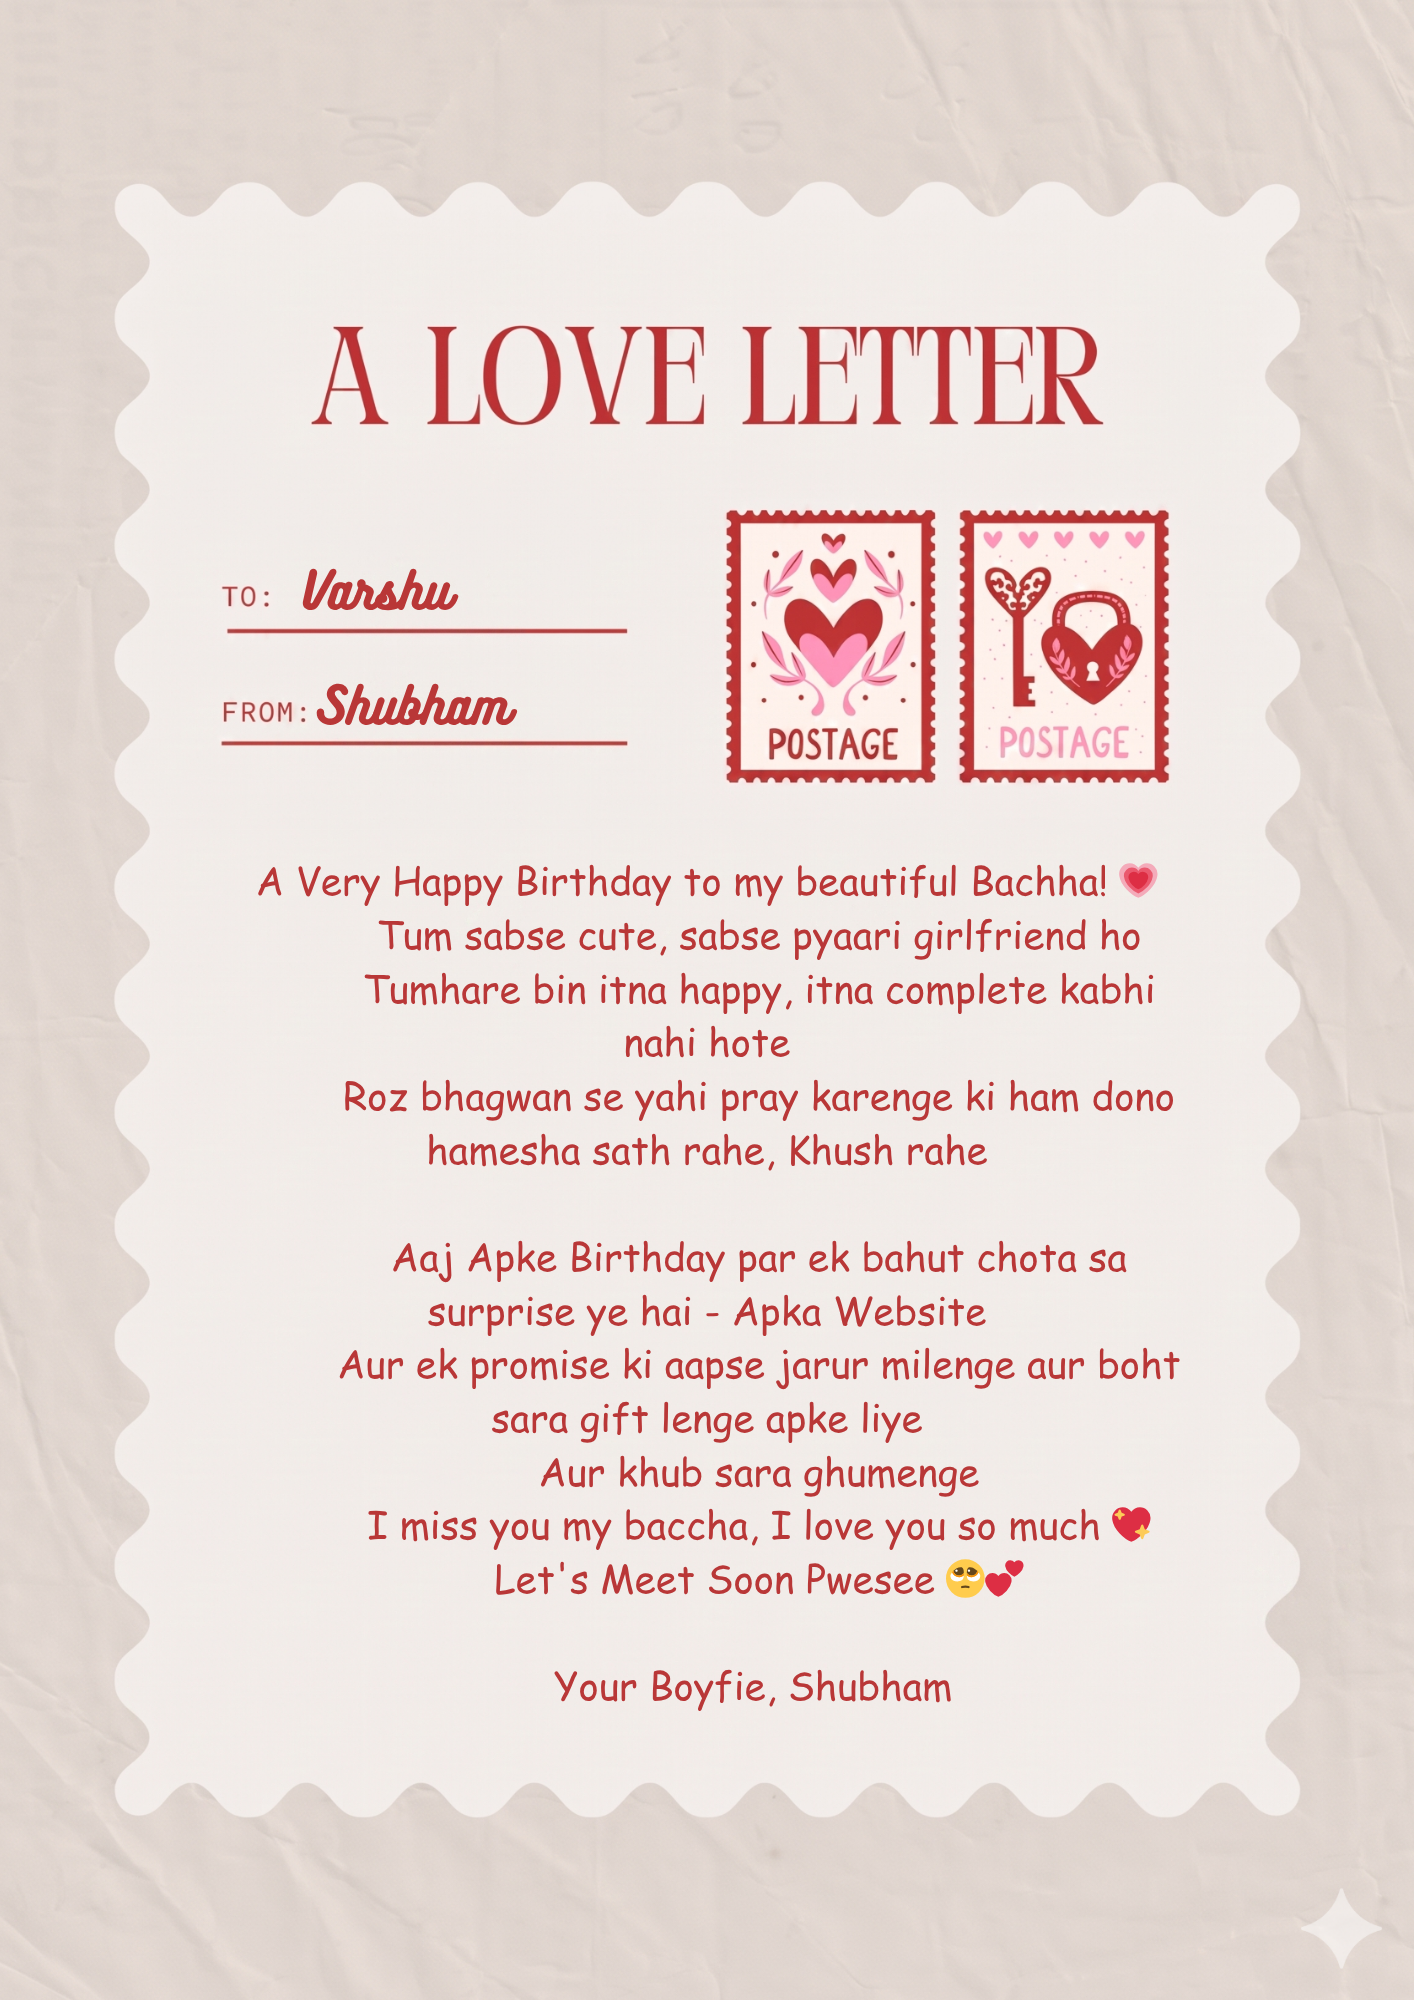 A LOVE LETTER
TO: Varshu
FROM: Shubham
POSTAGE
POSTAGE
A Very Happy Birthday to my beautiful Bachha! 💗
Tum sabse cute, sabse pyaari girlfriend ho
Tumhare bin itna happy, itna complete kabhi
nahi hote
Roz bhagwan se yahi pray karenge ki ham dono
hamesha sath rahe, Khush rahe
Aaj Apke Birthday par ek bahut chota sa
surprise ye hai - Apka Website
Aur ek promise ki aapse jarur milenge aur boht
sara gift lenge apke liye
Aur khub sara ghumenge
I miss you my baccha, I love you so much 💖
Let's Meet Soon Pwesee 🥺💕
Your Boyfie, Shubham